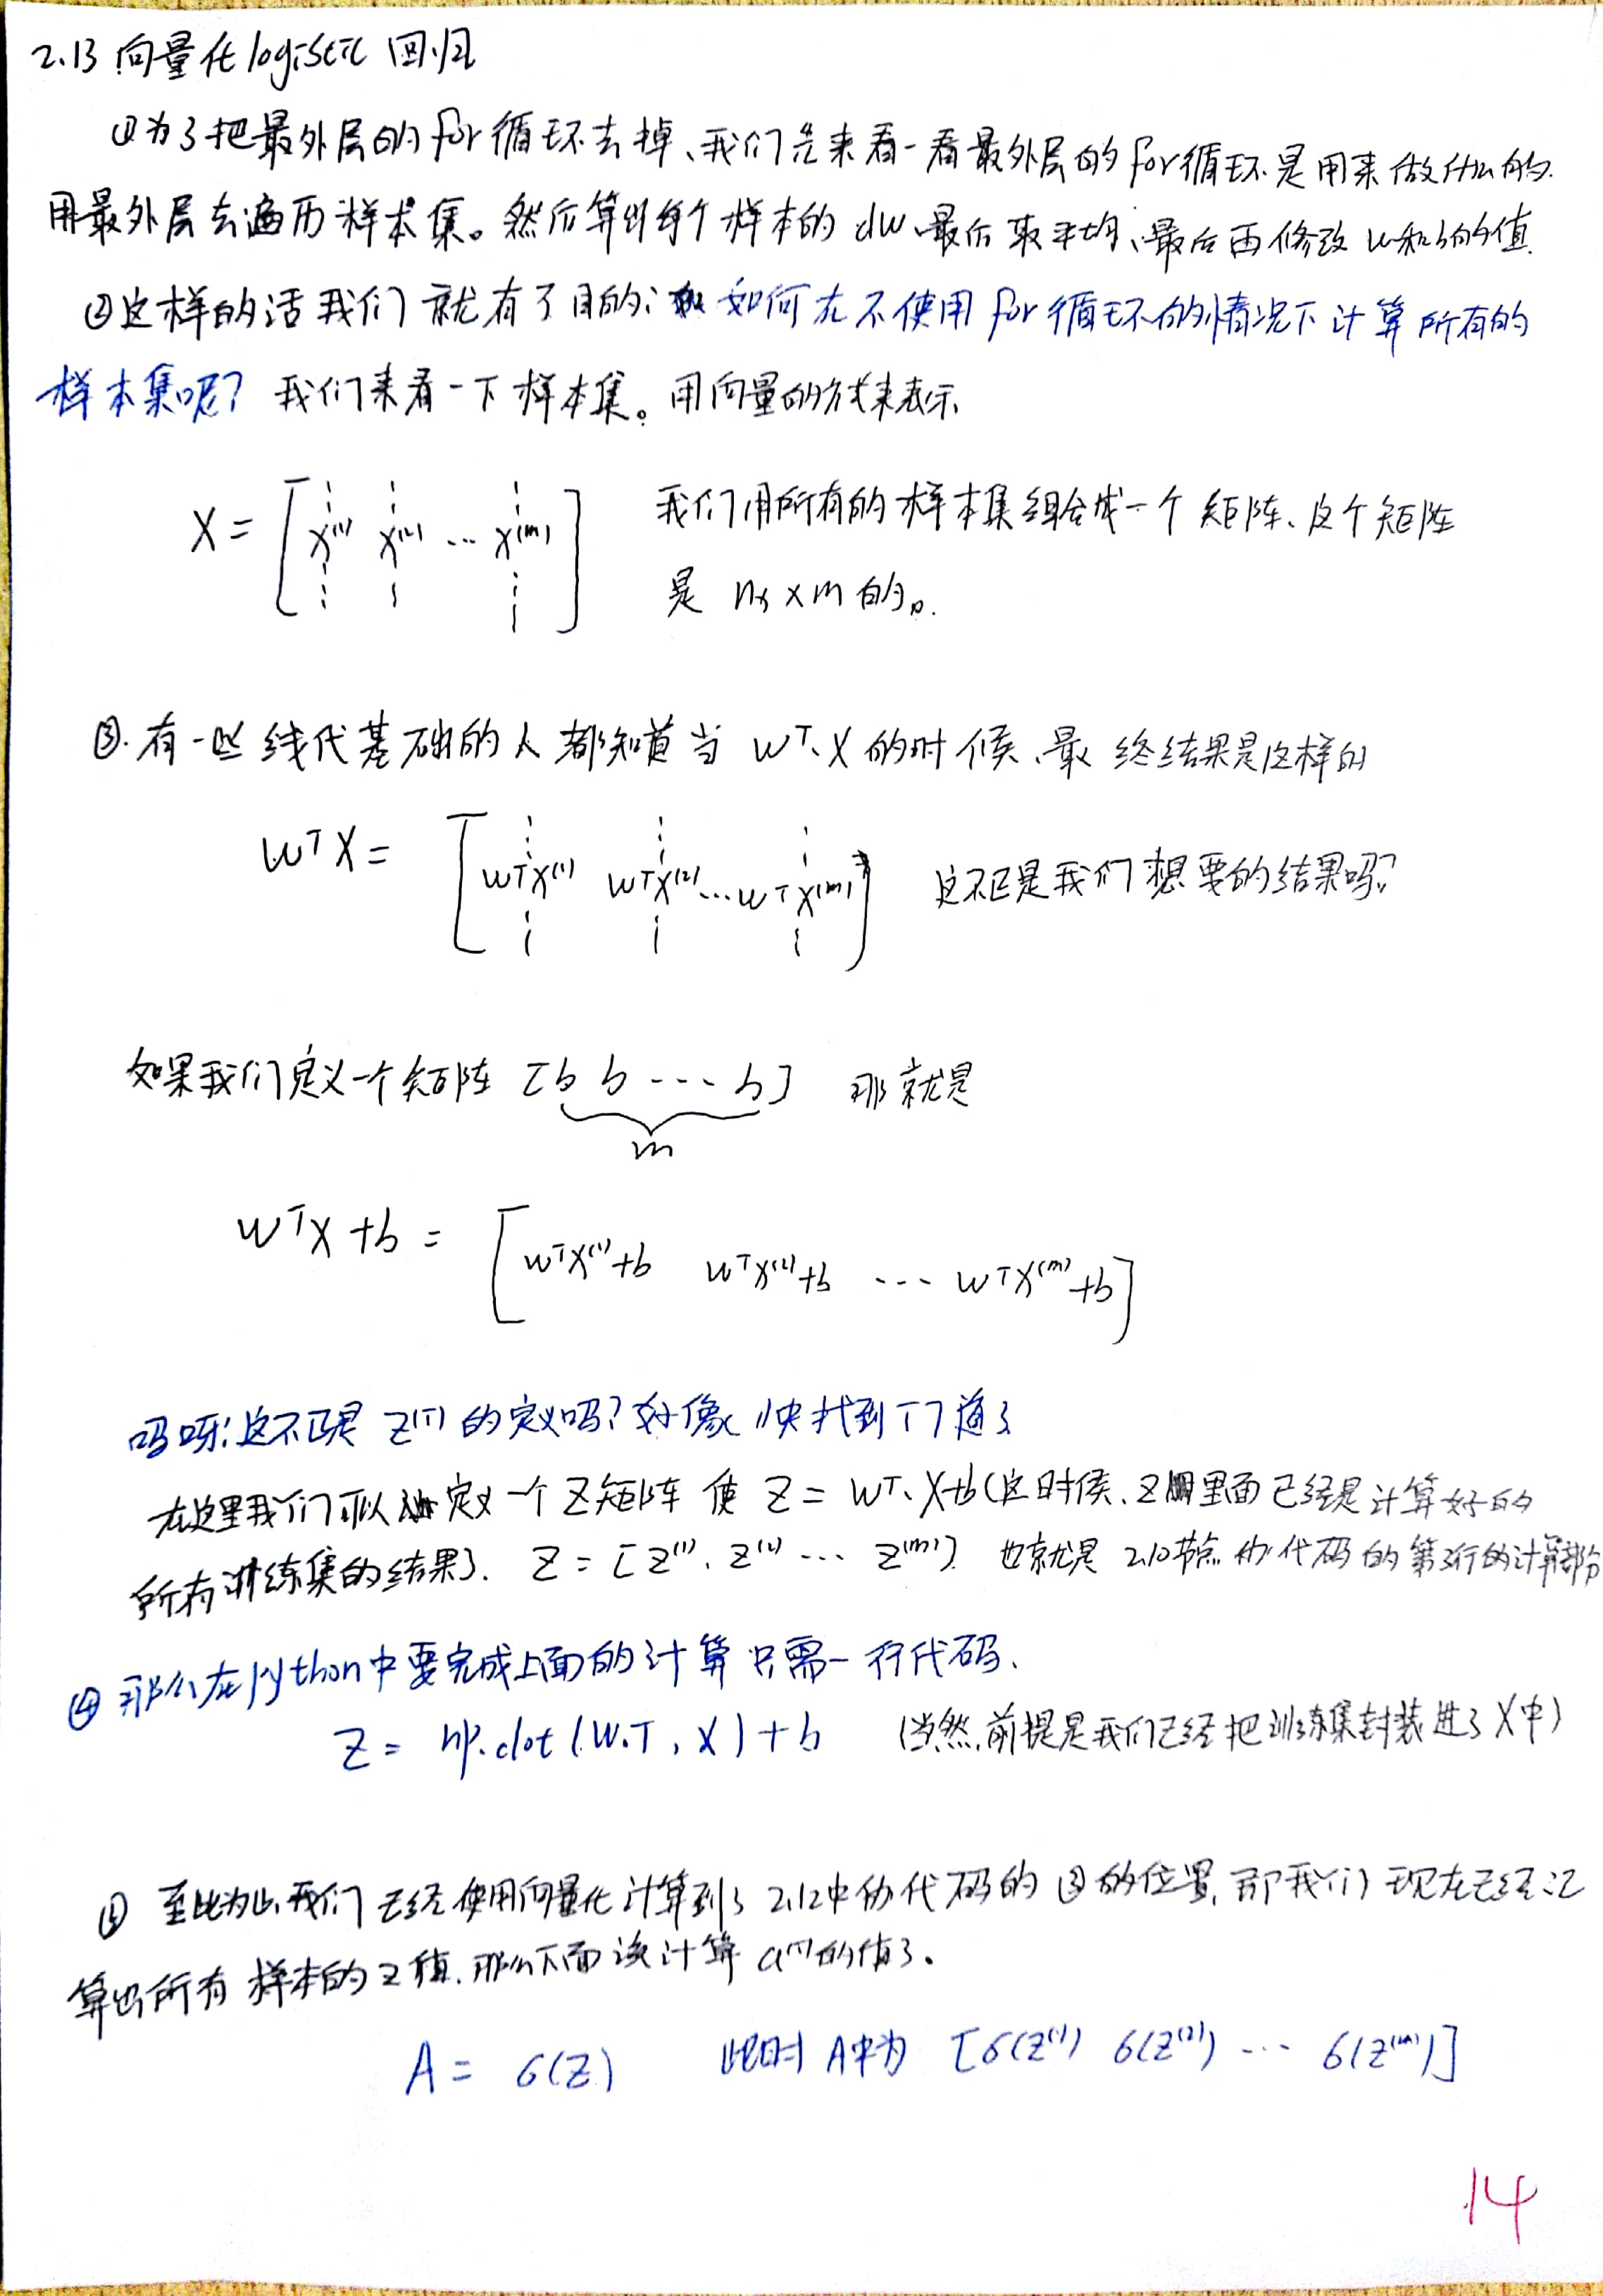 2.13 向量化 logistic 回归
①为了把最外层的for循环去掉、我们先来看一看最外层的for循环是用来做什么的.
用最外层去遍历样本集。然后算出每个样本的 dw、最后取平均、最后再修改 w和b的值.
②这样的话我们就有了目的: 如何在不使用 for 循环的情况下计算所有的
样本集呢? 我们来看一下样本集。用向量的方式来表示、
X = [x⁽¹⁾ x⁽²⁾ ... x⁽ᵐ⁾] 我们用所有的样本集组合成一个矩阵、这个矩阵
是 nx × m 的。
③. 有一些线代基础的人都知道当 wᵀ·X 的时候、最终结果是这样的
wᵀX = [wᵀx⁽¹⁾ wᵀx⁽²⁾ ... wᵀx⁽ᵐ⁾] 这不正是我们想要的结果吗?
如果我们定义一个矩阵 [b b ... b] 那就是
m
wᵀX + b = [wᵀx⁽¹⁾+b wᵀx⁽²⁾+b ... wᵀx⁽ᵐ⁾+b]
这不正是 z⁽ⁱ⁾ 的定义吗? 好像快找到门道了
在这里我们可以定义一个Z矩阵 使 Z = wᵀ·X+b (这时候、Z里面已经是计算好的
所有训练集的结果). Z = [z⁽¹⁾、z⁽²⁾ ... z⁽ᵐ⁾] 也就是 2.10节 伪代码的第3行的计算部分
④ 那么在python中要完成上面的计算只需一行代码、
Z = np.dot(W.T, X) + b (当然、前提是我们已经把训练集封装进了X中)
⑤ 至此为止、我们已经使用向量化计算到了 2.12中伪代码的③的位置, 那我们现在已经计
算出所有样本的z值. 那么下面该计算 a⁽ⁱ⁾的值了。
A = σ(Z) 此时 A中为 [σ(z⁽¹⁾) σ(z⁽²⁾) ... σ(z⁽ᵐ⁾)]
14